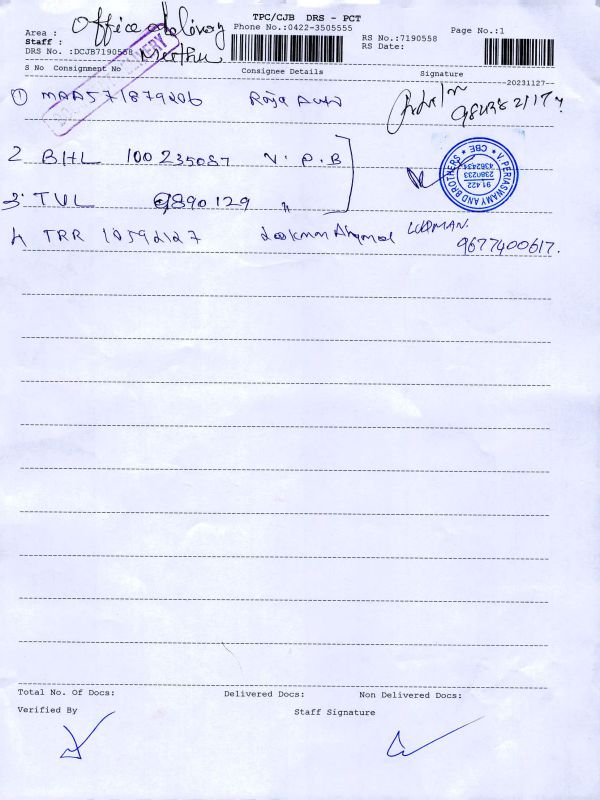 TPC/CJB DRS - PCT
Area : Office delivery
Phone No.:0422-3505555
RS No.:7190558
Page No.:1
Staff :
RS Date:
DRS No.:DCJB7190558
S No Consignment No Consignee Details Signature
20231127
1 MAA571879206 Raja Auto
2 BHL 100235087 V.P.B
3 TVL 9890129 "
V. PERIASWAMY AND BROTHERS
CBE
91 422
2380233
4362434
4 TRR 10592127 LUQMAN.
9677400617.
Total No. Of Docs: Delivered Docs: Non Delivered Docs:
Verified By Staff Signature